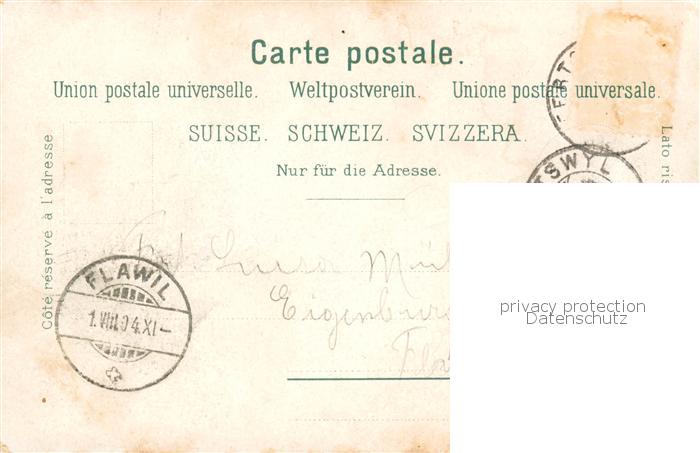 Carte postale.
Union postale universelle. Weltpostverein. Unione postale universale.
SUISSE. SCHWEIZ. SVIZZERA.
Nur für die Adresse.
Côté réservé à l'adresse
Lato ris
TSWYL
FLAWIL
1.VIII.04.XI-
Luisa
privacy protection
Datenschutz